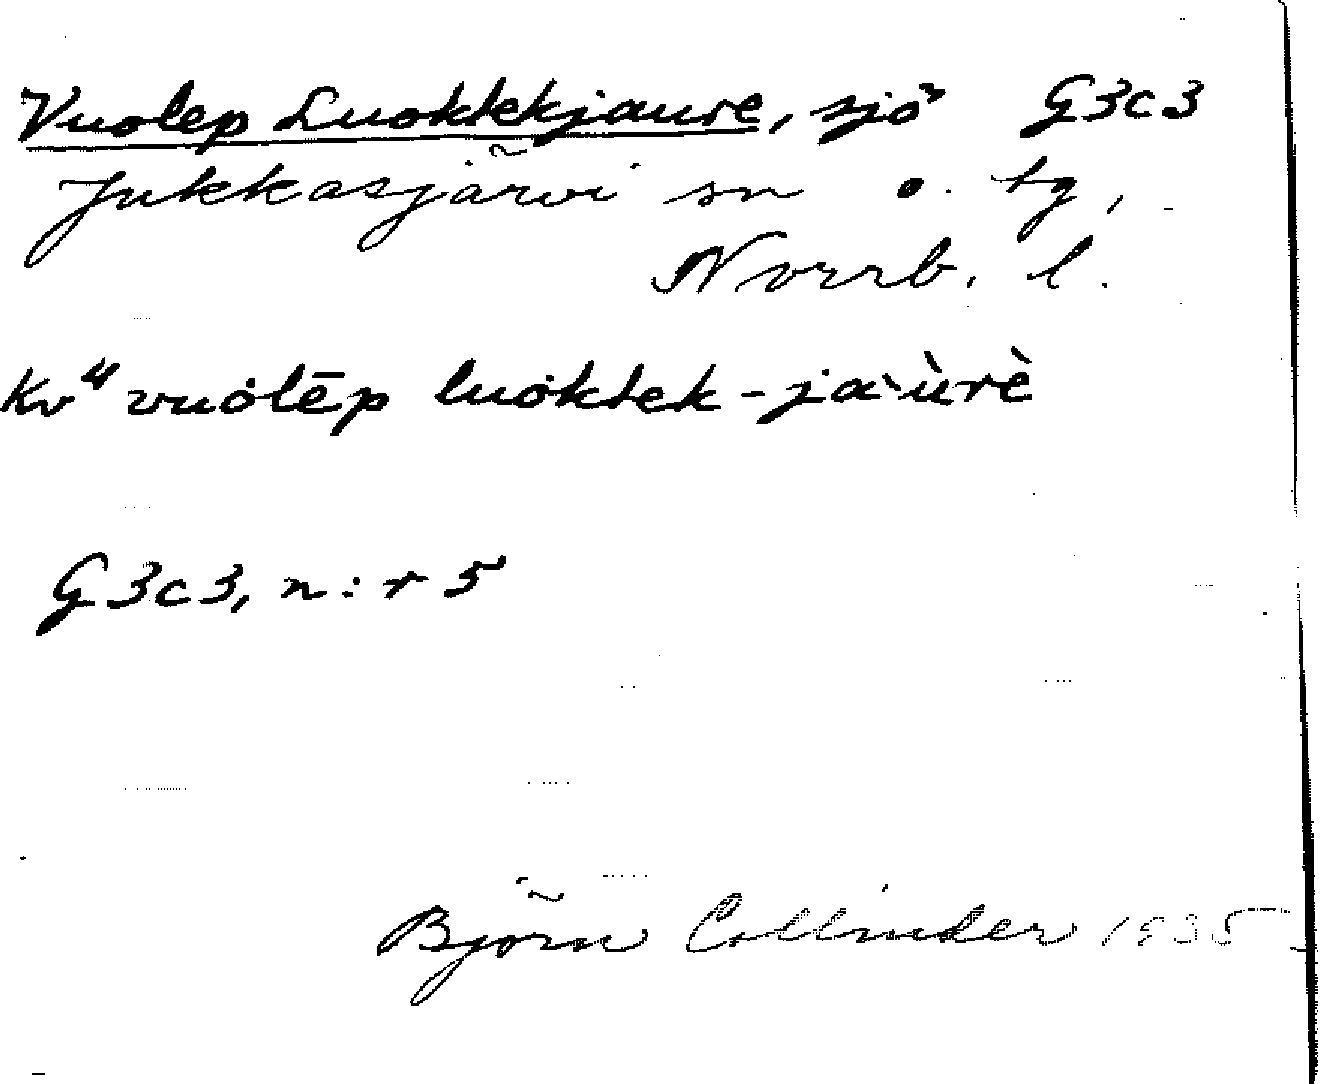 Vuolep Luoktekjaure, sjö G3c3
Jukkasjärvi sn o. tg,
Norrb. l.
Kv⁴ vuȯlēp luȯktek-jaˋùrè
G3c3, n:r 5
Björn Collinder 1935